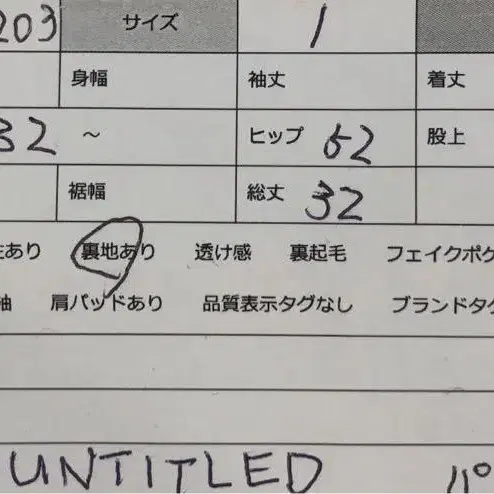 203 サイズ 1
身幅 袖丈 着丈
32 ～ ヒップ 52 股上
裾幅 総丈 32
あり 裏地あり 透け感 裏起毛 フェイクポケ
袖 肩パッドあり 品質表示タグなし ブランドタグ
UNTITLED パ